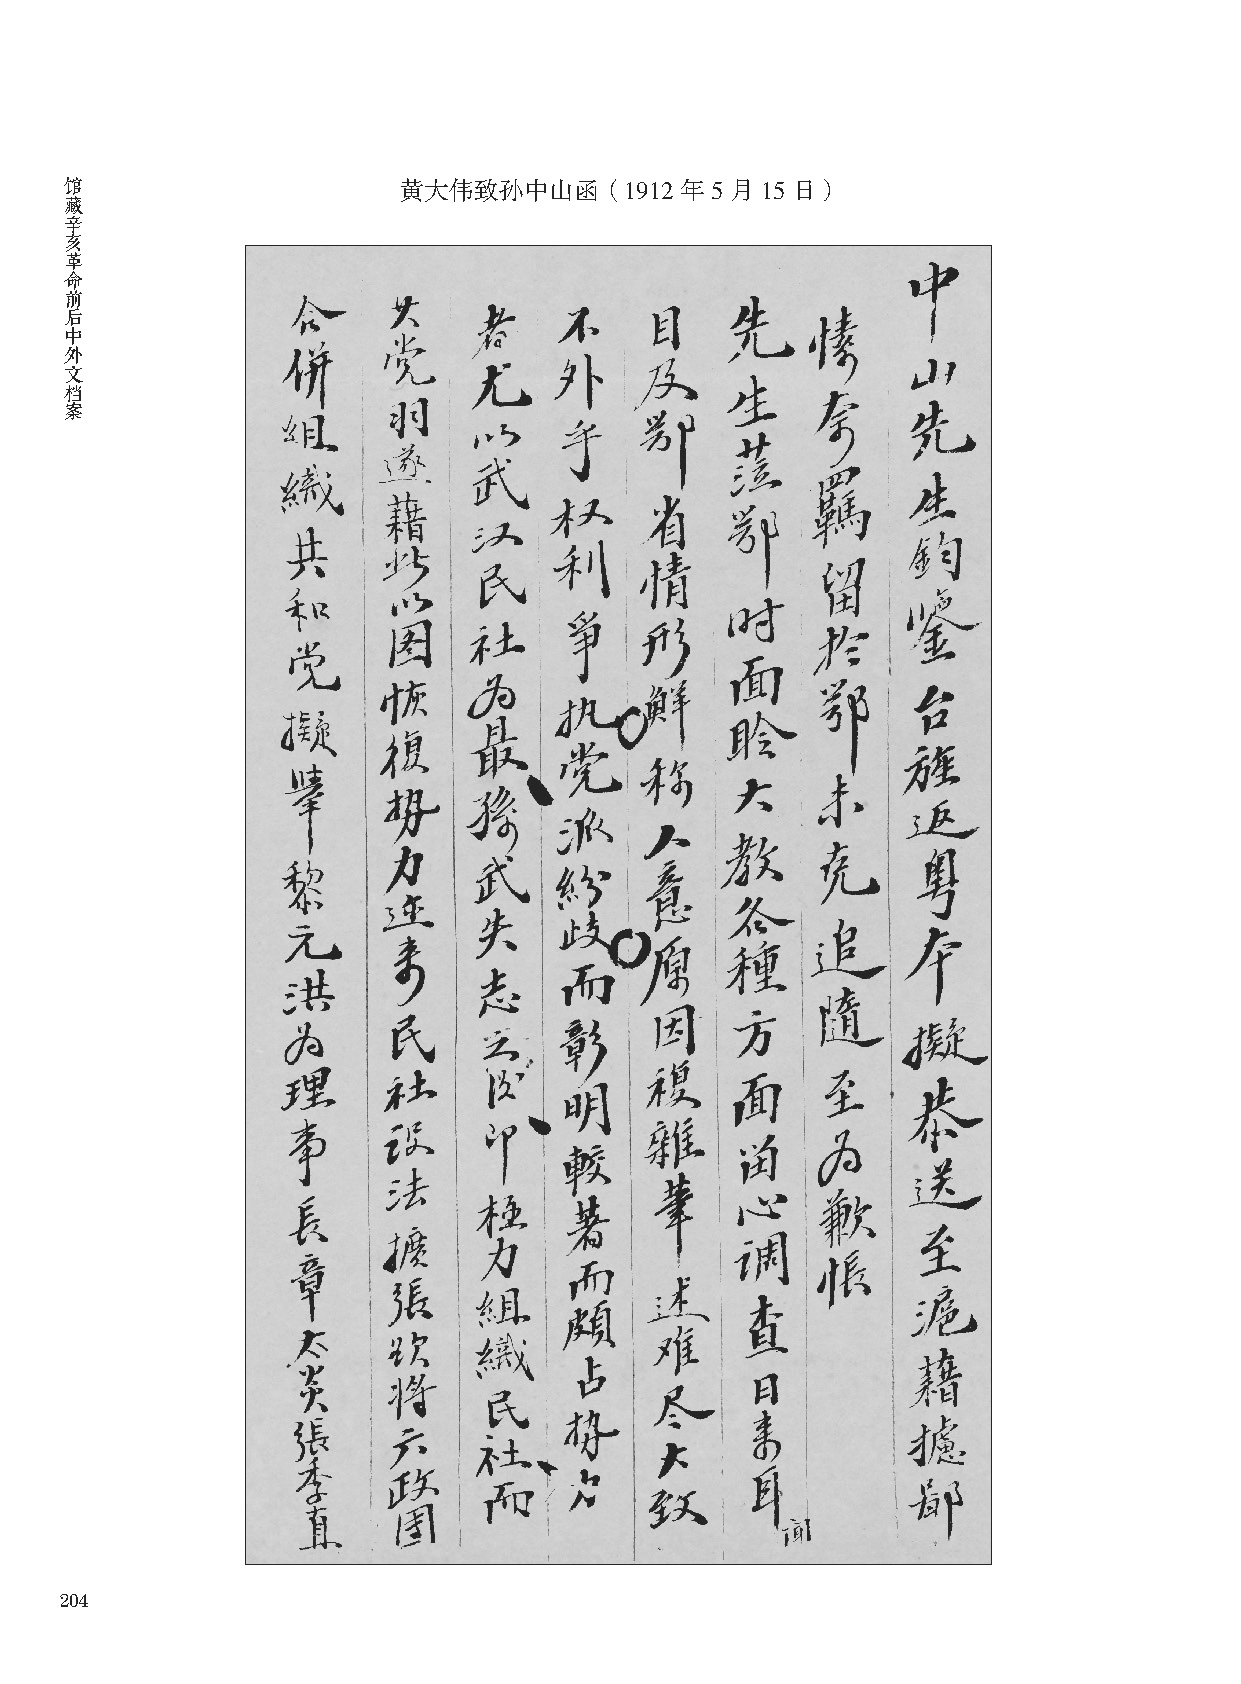 馆藏辛亥革命前后中外文档案
黄大伟致孙中山函（1912 年 5 月 15 日）
中山先生鈞鑒台旌返粤本擬恭送至滬藉攄鄙
悃奈羈留於鄂未克追隨至为歉悵
先生蒞鄂时面聆大教各種方面留心调查日来耳
聞
目及鄂省情形鮮称人意原因複雜筆述难尽大致
不外乎权利爭执党派紛歧而彰明較著而頗占势力
者尤以武汉民社为最孫武失志之後即極力組織民社而
其党羽遂藉此以图恢復势力近来民社设法擴張欲将六政团
合併組織共和党擬舉黎元洪为理事長章太炎張季直
204